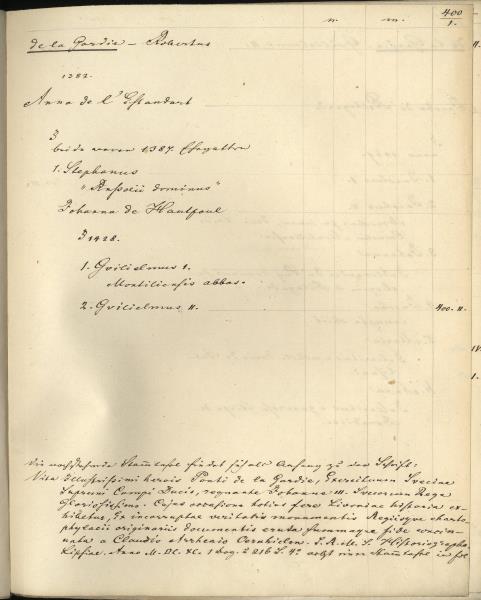 400
n. m. 1.
de la Gardie – Robertus
1382.
Anna de l'Estandart
beide waren 1387. Ehegatten
1. Stephanus
"Russolii dominus"
Johanna de Hautpoul
1428.
1. Gvilielmus I.
Montiliensis abbas.
2. Gvilielmus II. 400. II.
Die nachstehende Stammtafel findet sich als Anhang zu der Schrift:
Vita Illustrissimi herois Ponti de la Gardie, Exercituum Sveciae
Supremi Campi Ducis, regnante Johanne III. Svecorum Rege
Gloriosissimo. Cujus occasione totius fere Livoniae historia ex-
hibetur, Ex incorruptae veritatis monumentis Regiisque charto-
phylacii originariis documentis eruta summaque fide concin-
nata a Claudio Arrhenio Oernhielm. S. R. M. S. Historiographo
Lipsiae. Anno M. DC. XC. 1 Bog. 216 S. 4° nebst einer Stammtafel in fol